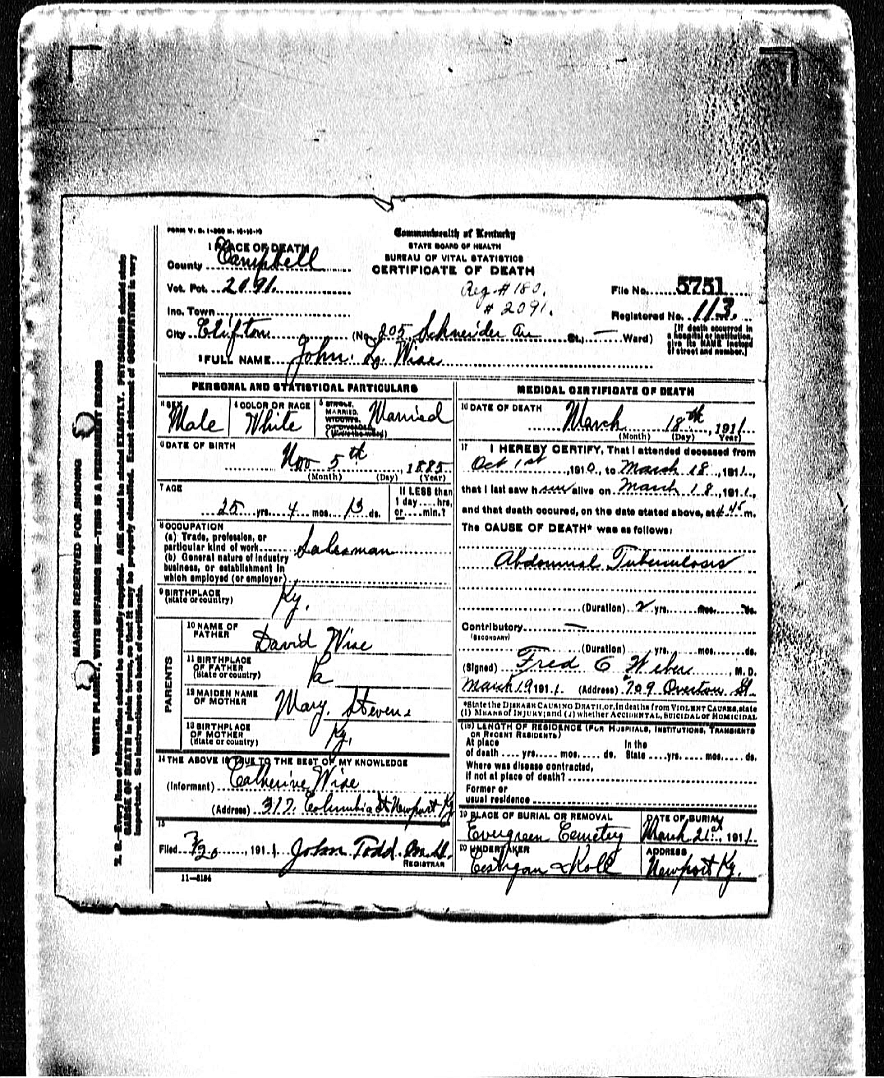 FORM V. S. 1-
Commonwealth of Kentucky
STATE BOARD OF HEALTH
BUREAU OF VITAL STATISTICS
CERTIFICATE OF DEATH
1 PLACE OF DEATH
County Campbell
Vot. Pct. 2091.
Inc. Town
City Clifton (No. 205 Schneider Av St., — Ward)
Reg # 180.
# 2091.
File No. 5751
Registered No. 113.
[If death occurred in
a hospital or institution,
give its NAME instead
of street and number.]
2 FULL NAME John. L. Wise
PERSONAL AND STATISTICAL PARTICULARS
3 SEX
Male
4 COLOR OR RACE
White
5 SINGLE,
MARRIED,
WIDOWED,
OR DIVORCED
(Write the word)
Married
6 DATE OF BIRTH
Nov 5th, 1885
(Month) (Day) (Year)
7 AGE
25 yrs. 4 mos. 13 ds.
If LESS than
1 day....hrs.
or....min.?
8 OCCUPATION
(a) Trade, profession, or
particular kind of work Salesman
(b) General nature of industry
business, or establishment in
which employed (or employer)
9 BIRTHPLACE
(state or country) Ky.
PARENTS
10 NAME OF
FATHER David Wise
11 BIRTHPLACE
OF FATHER
(state or country) Pa
12 MAIDEN NAME
OF MOTHER Mary Stevens
13 BIRTHPLACE
OF MOTHER
(state or country) Ky.
14 THE ABOVE IS TRUE TO THE BEST OF MY KNOWLEDGE
(Informant) Catherine Wise
(Address) 317. Columbia St Newport Ky
15
Filed 3/20, 1911. John Todd. M.D.
REGISTRAR
11—5184
MEDICAL CERTIFICATE OF DEATH
16 DATE OF DEATH
March 18th, 1911
(Month) (Day) (Year)
17 I HEREBY CERTIFY, That I attended deceased from
Oct 1st, 1910, to March 18, 1911,
that I last saw him alive on March 18, 1911,
and that death occured, on the date stated above, at m.
The CAUSE OF DEATH* was as follows:
Abdominal Tuberculosis
(Duration) 2 yrs. mos. ds.
Contributory —
(SECONDARY)
(Duration) yrs. mos. ds.
(Signed) Fred C Weber M. D.
March 19 1911. (Address) 709 Overton St.
*State the DISEASE CAUSING DEATH, or, in deaths from VIOLENT CAUSES, state
(1) MEANS OF INJURY; and (2) whether ACCIDENTAL, SUICIDAL or HOMICIDAL
(18) LENGTH OF RESIDENCE (FOR HOSPITALS, INSTITUTIONS, TRANSIENTS
OR RECENT RESIDENTS)
At place In the
of death .... yrs. .... mos. .... ds. State .... yrs. .... mos. .... ds.
Where was disease contracted,
if not at place of death?
Former or
usual residence
19 PLACE OF BURIAL OR REMOVAL
Evergreen Cemetry
DATE OF BURIAL
March 21st, 1911.
20 UNDERTAKER
Costigan & Koll
ADDRESS
Newport Ky.
MARGIN RESERVED FOR BINDING
WRITE PLAINLY, WITH UNFADING INK—THIS IS A PERMANENT RECORD
N. B.—Every item of information should be carefully supplied. AGE should be stated EXACTLY. PHYSICIANS should state
CAUSE OF DEATH in plain terms, so that it may be properly classified. Exact statement of OCCUPATION is very
important. See instructions on back of certificate.